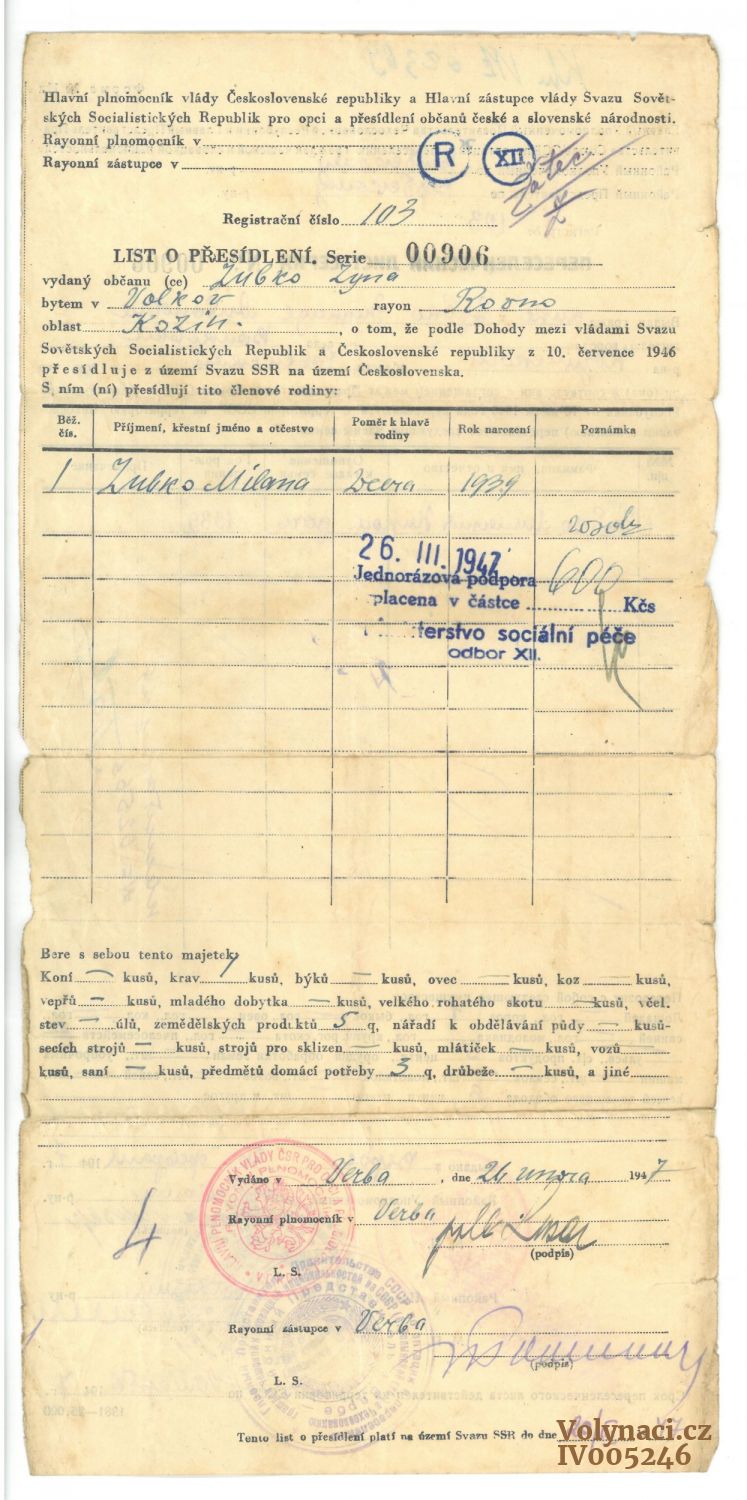 Hlavní plnomocník vlády Československé republiky a Hlavní zástupce vlády Svazu Sovět-
ských Socialistických Republik pro opci a přesídlení občanů české a slovenské národnosti.
Rayonní plnomocník v
Rayonní zástupce v
R XII
Žatec
Registrační číslo 103
LIST O PŘESÍDLENÍ. Serie 00906
vydaný občanu (ce) Zubko Zyna
bytem v Volkov rayon Rovno
oblast Kozin. , o tom, že podle Dohody mezi vládami Svazu
Sovětských Socialistických Republik a Československé republiky z 10. července 1946
přesídluje z území Svazu SSR na území Československa.
S ním (ní) přesídlují tito členové rodiny:
Běž. čís. Příjmení, křestní jméno a otčestvo Poměr k hlavě rodiny Rok narození Poznámka
1 Zubko Milana dcera 1939
26. III. 1947
Jednorázová podpora
placena v částce 600 Kčs
terstvo sociální péče
odbor XII.
Bere s sebou tento majetek
Koní — kusů, krav kusů, býků — kusů, ovec — kusů, koz — kusů,
vepřů — kusů, mladého dobytka — kusů, velkého rohatého skotu — kusů, včel.
stev — úlů, zemědělských produktů 5 q, nářadí k obdělávání půdy — kusů-
secích strojů — kusů, strojů pro sklizen — kusů, mlátiček — kusů, vozů —
kusů, saní — kusů, předmětů domácí potřeby 3 q, drůbeže — kusů, a jiné
Vydáno v Verba , dne 26 února 1947
Rayonní plnomocník v Verba
(podpis)
4
L. S.
Rayonní zástupce v Verba
(podpis)
L. S.
Tento list o přesídlení platí na území Svazu SSR do dne
Volynaci.cz
IV005246